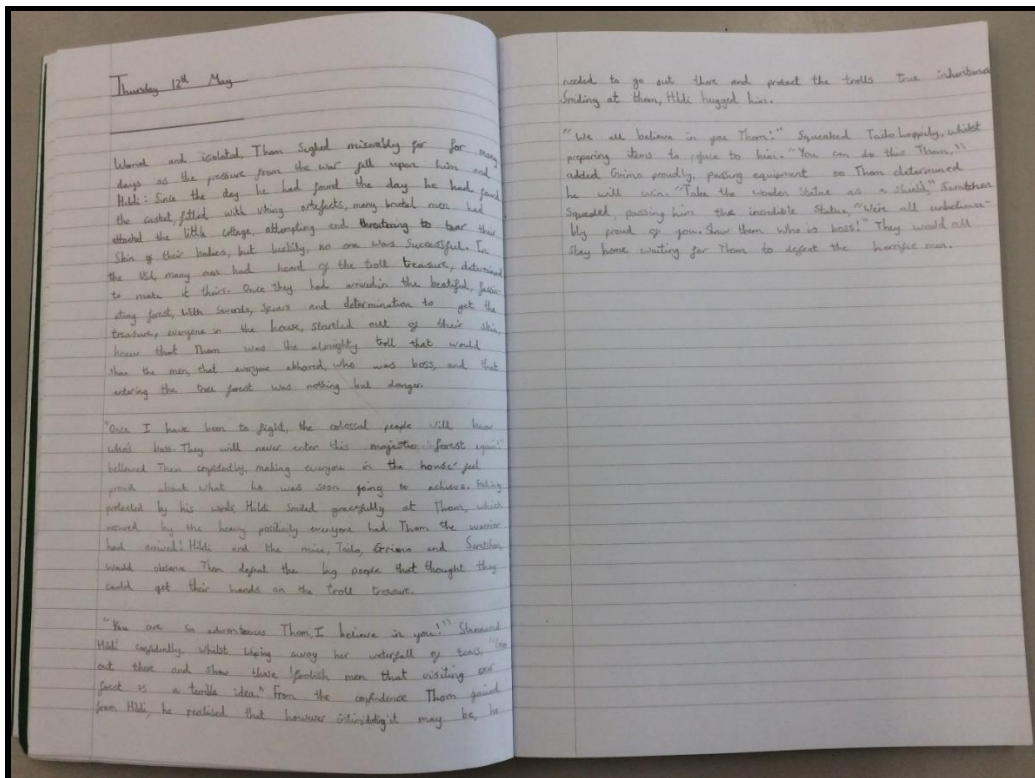 Thursday 12th May
Worried and isolated, Thom Sighed miserably for for many
days as the pressure from the war fell upon him and
Hildi: Since the day he had found the day he had found
the casket, filled with viking artefacts, many brutal men had
attacked the little cottage, attempting and threatening to tear their
Skin of their bodies, but luckily, no one was successful. In
the many men had heard of the troll treasure, determined
to make it theirs. Once they had arrived in the beatiful, fascin-
ating forest, with Swords, Spears and determination to get the
treasure, everyone in the house, startled out of their skin,
knew that Thom was the almighty troll that would
show the men, that everyone abhored, who was boss, and that
entering the tree forest was nothing but danger.
"Once I have been to fight, the colossal people will know
who's boss. They will never enter this majestic forest again!"
bellowed Thom confidently, making everyone in the house feel
proud about what he was soon going to achieve. Feeling
protected by his words, Hildi Smiled gracefully at Thom, which
by the heavy positivity everyone had Thom the warrior
had arrived! Hildi and the mice, Tailo, Grimo and
would observe Thom defeat the big people that thought they
could get their hands on the troll treasure.
"You are so adventurous Thom, I believe in you!"
Hildi confidently, whilst wiping away her waterfall of tears. "Go
out there and show those foolish men that visiting our
forest is a terrible idea." From the confidence Thom gained
from Hildi, he realised that however it may be, he
needed to go out there and protect the trolls true inheritance
Smiling at them, Hildi hugged him.
"We all believe in you Thom!" Squeaked Tailo happily, whilst
preparing items to to him. "You can do this Thom,"
added Grimo proudly, passing equipment so Thom determined
he will win. "Take the wooden Statue as a shield,"
Squeaked, passing him the incredible Statue, "We're all unbelievea-
bly proud of you. Show them who is boss!" They would all
stay home waiting for Thom to defeat the horrific men.